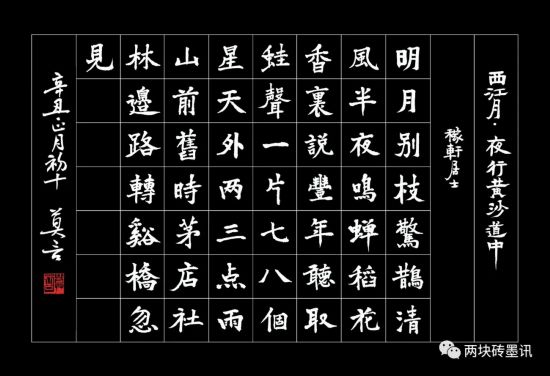 西江月·夜行黄沙道中
稼軒居士
明月别枝驚鵲清
風半夜鳴蟬稻花
香裏説豐年聽取
蛙聲一片七八個
星天外两三点雨
山前舊時茅店社
林邊路轉谿橋忽
見
辛丑·正月初十 莫言
两块砖墨讯